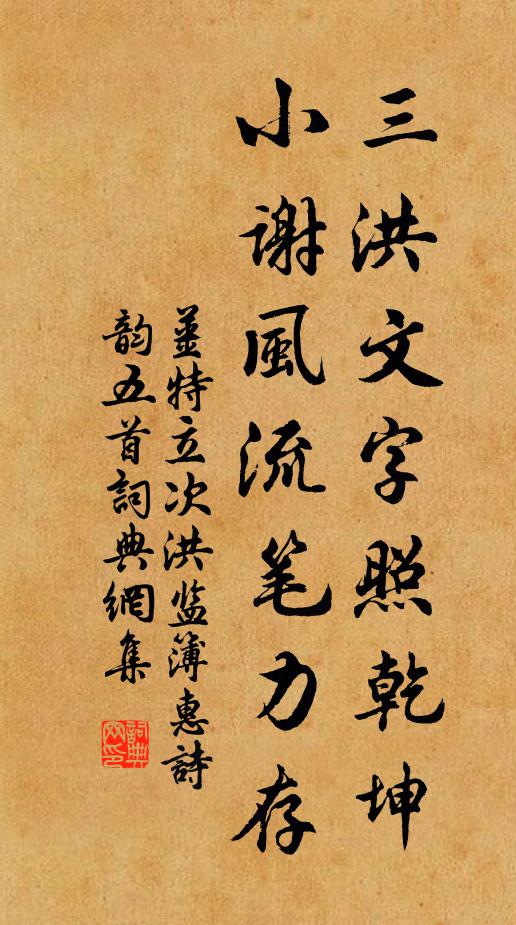 三洪文字照乾坤
小謝風流笔力存
姜特立次洪监簿惠詩
韵五首詞典網集
詞典網印